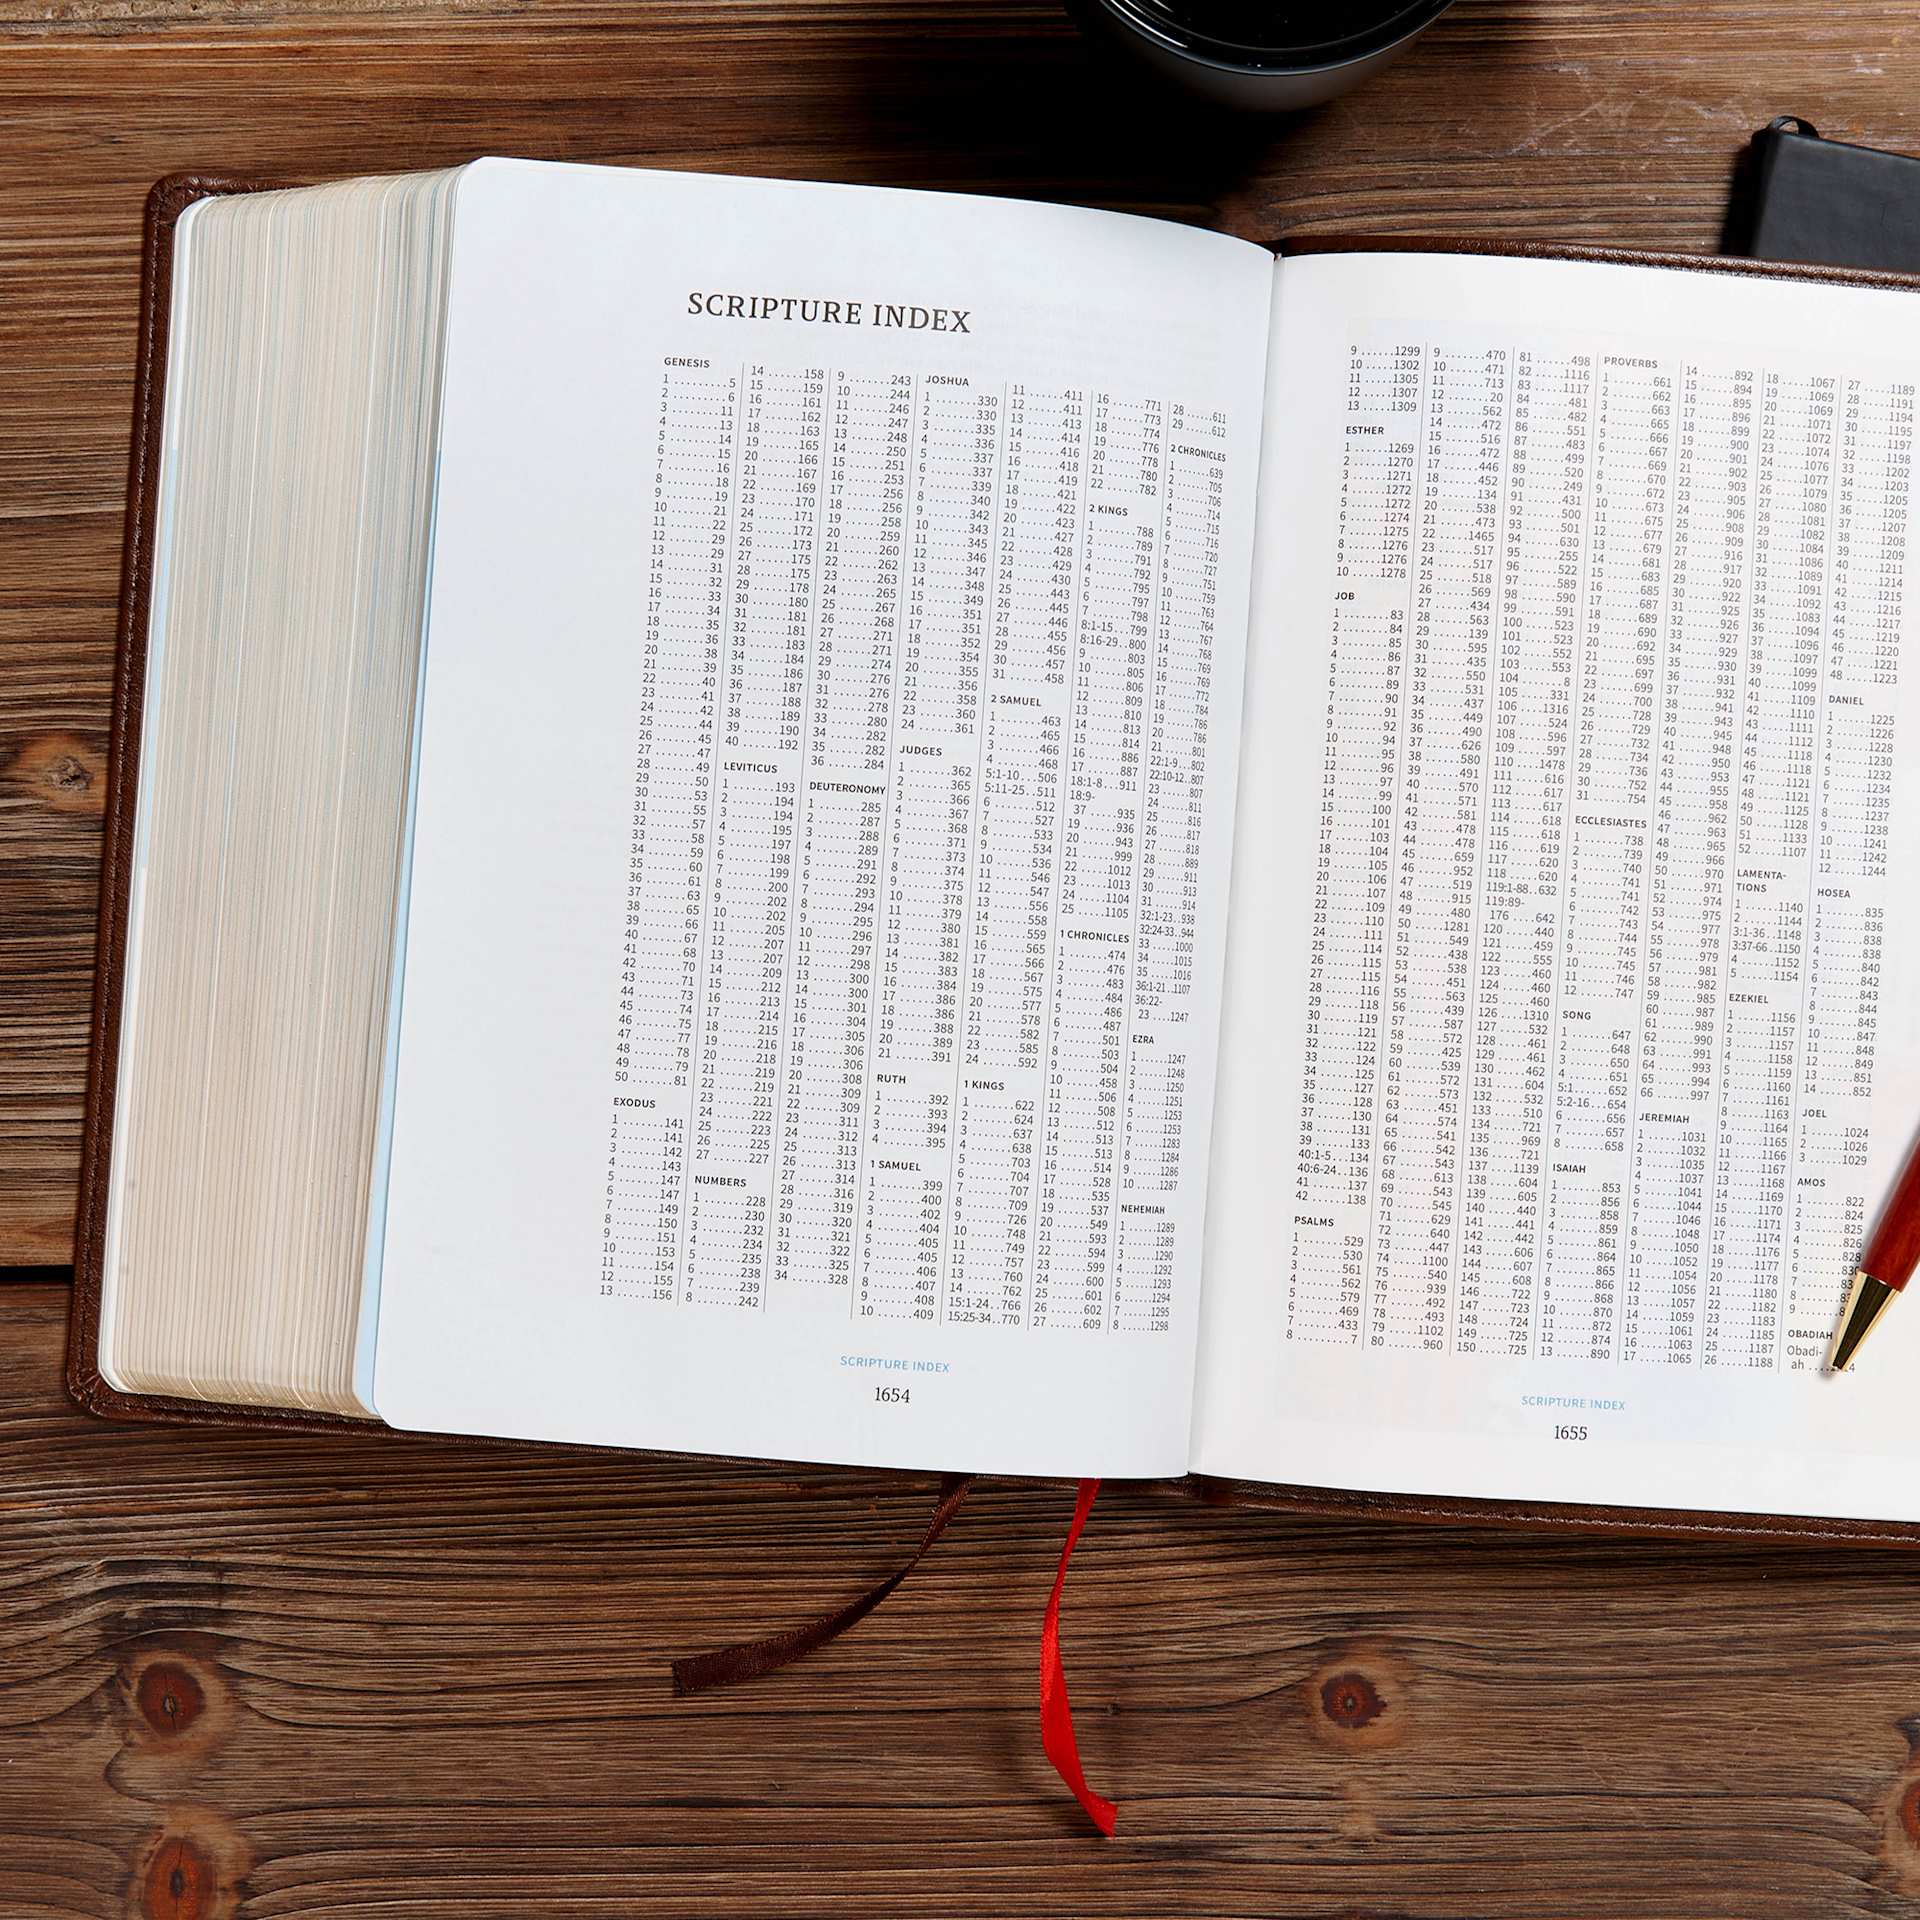 SCRIPTURE INDEX
GENESIS
1 .........5
2 .........6
3 ........11
4 ........13
5 ........14
6 ........15
7 ........16
8 ........18
9 ........19
10 .......21
11 .......22
12 .......29
13 .......29
14 .......31
15 .......32
16 .......33
17 .......34
18 .......35
19 .......36
20 .......38
21 .......39
22 .......40
23 .......41
24 .......42
25 .......44
26 .......45
27 .......47
28 .......49
29 .......50
30 .......53
31 .......55
32 .......57
33 .......58
34 .......59
35 .......60
36 .......61
37 .......63
38 .......65
39 .......66
40 .......67
41 .......68
42 .......70
43 .......71
44 .......73
45 .......74
46 .......75
47 .......77
48 .......78
49 .......79
50 .......81
EXODUS
1 .......141
2 .......141
3 .......142
4 .......143
5 .......147
6 .......147
7 .......149
8 .......150
9 .......151
10 ......153
11 ......154
12 ......155
13 ......156
14 ......158
15 ......159
16 ......161
17 ......162
18 ......163
19 ......165
20 ......166
21 ......167
22 ......169
23 ......170
24 ......171
25 ......172
26 ......173
27 ......175
28 ......175
29 ......178
30 ......180
31 ......181
32 ......181
33 ......183
34 ......184
35 ......186
36 ......187
37 ......188
38 ......189
39 ......190
40 ......192
LEVITICUS
1 .......193
2 .......194
3 .......194
4 .......195
5 .......197
6 .......198
7 .......199
8 .......200
9 .......202
10 ......202
11 ......205
12 ......207
13 ......207
14 ......209
15 ......212
16 ......213
17 ......214
18 ......215
19 ......216
20 ......218
21 ......219
22 ......219
23 ......221
24 ......222
25 ......223
26 ......225
27 ......227
NUMBERS
1 .......228
2 .......230
3 .......232
4 .......234
5 .......235
6 .......238
7 .......239
8 .......242
9 .......243
10 ......244
11 ......246
12 ......247
13 ......248
14 ......250
15 ......251
16 ......253
17 ......256
18 ......256
19 ......258
20 ......259
21 ......260
22 ......262
23 ......263
24 ......265
25 ......267
26 ......268
27 ......271
28 ......271
29 ......274
30 ......276
31 ......276
32 ......278
33 ......280
34 ......282
35 ......282
36 ......284
DEUTERONOMY
1 .......285
2 .......287
3 .......288
4 .......289
5 .......291
6 .......292
7 .......293
8 .......294
9 .......295
10 ......296
11 ......297
12 ......298
13 ......300
14 ......300
15 ......301
16 ......304
17 ......305
18 ......306
19 ......306
20 ......308
21 ......309
22 ......309
23 ......311
24 ......312
25 ......313
26 ......313
27 ......314
28 ......316
29 ......319
30 ......320
31 ......321
32 ......322
33 ......325
34 ......328
JOSHUA
1 .......330
2 .......330
3 .......335
4 .......336
5 .......337
6 .......337
7 .......339
8 .......340
9 .......342
10 ......343
11 ......345
12 ......346
13 ......347
14 ......348
15 ......349
16 ......351
17 ......351
18 ......352
19 ......354
20 ......355
21 ......356
22 ......358
23 ......360
24 ......361
JUDGES
1 .......362
2 .......365
3 .......366
4 .......367
5 .......368
6 .......371
7 .......373
8 .......374
9 .......375
10 ......378
11 ......379
12 ......380
13 ......381
14 ......382
15 ......383
16 ......384
17 ......386
18 ......386
19 ......388
20 ......389
21 ......391
RUTH
1 .......392
2 .......393
3 .......394
4 .......395
1 SAMUEL
1 .......399
2 .......400
3 .......402
4 .......404
5 .......405
6 .......405
7 .......406
8 .......407
9 .......408
10 ......409
11 ......411
12 ......411
13 ......413
14 ......414
15 ......416
16 ......418
17 ......419
18 ......421
19 ......422
20 ......423
21 ......427
22 ......428
23 ......429
24 ......430
25 ......443
26 ......445
27 ......446
28 ......455
29 ......456
30 ......457
31 ......458
2 SAMUEL
1 .......463
2 .......465
3 .......466
4 .......468
5:1-10 ...506
5:11-25 ..511
6 .......512
7 .......527
8 .......533
9 .......534
10 ......536
11 ......546
12 ......547
13 ......556
14 ......558
15 ......559
16 ......565
17 ......566
18 ......567
19 ......575
20 ......577
21 ......578
22 ......582
23 ......585
24 ......592
1 KINGS
1 .......622
2 .......624
3 .......637
4 .......638
5 .......703
6 .......704
7 .......707
8 .......709
9 .......726
10 ......748
11 ......749
12 ......757
13 ......760
14 ......762
15:1-24 ..766
15:25-34 ..770
16 ......771
17 ......773
18 ......774
19 ......776
20 ......778
21 ......780
22 ......782
2 KINGS
1 .......788
2 .......789
3 .......791
4 .......792
5 .......795
6 .......797
7 .......798
8:1-15 ...799
8:16-29 ..800
9 .......803
10 ......805
11 ......806
12 ......809
13 ......810
14 ......813
15 ......814
16 ......886
17 ......887
18:1-8 ...911
18:9-
37 ......935
19 ......936
20 ......943
21 ......999
22 .....1012
23 .....1013
24 .....1104
25 .....1105
1 CHRONICLES
1 .......474
2 .......476
3 .......483
4 .......484
5 .......486
6 .......487
7 .......501
8 .......503
9 .......504
10 ......458
11 ......506
12 ......508
13 ......512
14 ......513
15 ......513
16 ......514
17 ......528
18 ......535
19 ......537
20 ......549
21 ......593
22 ......594
23 ......599
24 ......600
25 ......601
26 ......602
27 ......609
28 ......611
29 ......612
2 CHRONICLES
1 .......639
2 .......705
3 .......706
4 .......714
5 .......715
6 .......716
7 .......720
8 .......727
9 .......751
10 ......759
11 ......763
12 ......764
13 ......767
14 ......768
15 ......769
16 ......769
17 ......772
18 ......784
19 ......786
20 ......786
21 ......801
22:1-9 ...802
22:10-12 ..807
23 ......807
24 ......811
25 ......816
26 ......817
27 ......818
28 ......889
29 ......911
30 ......913
31 ......914
32:1-23 ..938
32:24-33 ..944
33 .....1000
34 .....1015
35 .....1016
36:1-21 ..1107
36:22-
23 .....1247
EZRA
1 ......1247
2 ......1248
3 ......1250
4 ......1251
5 ......1253
6 ......1253
7 ......1283
8 ......1284
9 ......1286
10 .....1287
NEHEMIAH
1 ......1289
2 ......1289
3 ......1290
4 ......1292
5 ......1293
6 ......1294
7 ......1295
8 ......1298
SCRIPTURE INDEX
1654
9 ......1299
10 .....1302
11 .....1305
12 .....1307
13 .....1309
ESTHER
1 ......1269
2 ......1270
3 ......1271
4 ......1272
5 ......1272
6 ......1274
7 ......1275
8 ......1276
9 ......1276
10 .....1278
JOB
1 ........83
2 ........84
3 ........85
4 ........86
5 ........87
6 ........89
7 ........90
8 ........91
9 ........92
10 .......94
11 .......95
12 .......96
13 .......97
14 .......99
15 ......100
16 ......101
17 ......103
18 ......104
19 ......105
20 ......106
21 ......107
22 ......109
23 ......110
24 ......111
25 ......114
26 ......115
27 ......115
28 ......116
29 ......118
30 ......119
31 ......121
32 ......122
33 ......124
34 ......125
35 ......127
36 ......128
37 ......130
38 ......131
39 ......133
40:1-5 ...134
40:6-24 ..136
41 ......137
42 ......138
PSALMS
1 .......529
2 .......530
3 .......561
4 .......562
5 .......579
6 .......469
7 .......433
8 .........7
9 .......470
10 ......471
11 ......713
12 .......20
13 ......562
14 ......472
15 ......516
16 ......472
17 ......446
18 ......452
19 ......134
20 ......538
21 ......473
22 .....1465
23 ......517
24 ......517
25 ......518
26 ......569
27 ......434
28 ......563
29 ......139
30 ......595
31 ......435
32 ......550
33 ......531
34 ......437
35 ......449
36 ......490
37 ......626
38 ......580
39 ......491
40 ......570
41 ......571
42 ......581
43 ......478
44 ......454
45 ......659
46 ......952
47 ......519
48 ......915
49 ......480
50 .....1281
51 ......549
52 ......438
53 ......538
54 ......451
55 ......563
56 ......439
57 ......587
58 ......572
59 ......425
60 ......539
61 ......572
62 ......573
63 ......451
64 ......574
65 ......541
66 ......542
67 ......543
68 ......613
69 ......543
70 ......545
71 ......629
72 ......640
73 ......447
74 .....1100
75 ......540
76 ......939
77 ......492
78 ......493
79 .....1102
80 ......960
81 ......498
82 .....1116
83 .....1117
84 ......481
85 ......482
86 ......551
87 ......483
88 ......499
89 ......520
90 ......249
91 ......431
92 ......500
93 ......501
94 ......630
95 ......255
96 ......522
97 ......589
98 ......590
99 ......591
100 .....523
101 .....523
102 .....552
103 .....553
104 .......8
105 .....331
106 ....1316
107 .....524
108 .....596
109 .....597
110 ....1478
111 .....616
112 .....617
113 .....617
114 .....618
115 .....618
116 .....619
117 .....620
118 .....620
119:1-88 ..632
119:89-
176 .....642
120 .....440
121 .....459
122 .....555
123 .....460
124 .....460
125 .....460
126 ....1310
127 .....532
128 .....461
129 .....461
130 .....462
131 .....604
132 .....532
133 .....510
134 .....721
135 .....969
136 .....721
137 ....1139
138 .....604
139 .....605
140 .....440
141 .....441
142 .....442
143 .....606
144 .....607
145 .....608
146 .....722
147 .....723
148 .....724
149 .....725
150 .....725
PROVERBS
1 .......661
2 .......662
3 .......663
4 .......665
5 .......666
6 .......667
7 .......669
8 .......670
9 .......672
10 ......673
11 ......675
12 ......677
13 ......679
14 ......681
15 ......683
16 ......685
17 ......687
18 ......689
19 ......690
20 ......692
21 ......695
22 ......697
23 ......699
24 ......700
25 ......728
26 ......729
27 ......732
28 ......734
29 ......736
30 ......752
31 ......754
ECCLESIASTES
1 .......738
2 .......739
3 .......740
4 .......741
5 .......741
6 .......742
7 .......743
8 .......744
9 .......745
10 ......745
11 ......746
12 ......747
SONG
1 .......647
2 .......648
3 .......650
4 .......651
5:1 .....652
5:2-16 ...654
6 .......656
7 .......657
8 .......658
ISAIAH
1 .......853
2 .......856
3 .......858
4 .......859
5 .......861
6 .......864
7 .......865
8 .......866
9 .......868
10 ......870
11 ......872
12 ......874
13 ......890
14 ......892
15 ......894
16 ......895
17 ......896
18 ......899
19 ......900
20 ......901
21 ......902
22 ......903
23 ......905
24 ......906
25 ......908
26 ......909
27 ......916
28 ......917
29 ......920
30 ......922
31 ......925
32 ......926
33 ......927
34 ......929
35 ......930
36 ......931
37 ......932
38 ......941
39 ......943
40 ......945
41 ......948
42 ......950
43 ......953
44 ......955
45 ......958
46 ......962
47 ......963
48 ......965
49 ......966
50 ......970
51 ......971
52 ......974
53 ......974
54 ......977
55 ......978
56 ......979
57 ......981
58 ......982
59 ......985
60 ......987
61 ......989
62 ......990
63 ......991
64 ......993
65 ......994
66 ......997
JEREMIAH
1 ......1031
2 ......1032
3 ......1035
4 ......1037
5 ......1041
6 ......1044
7 ......1046
8 ......1048
9 ......1050
10 .....1052
11 .....1054
12 .....1056
13 .....1057
14 .....1059
15 .....1061
16 .....1063
17 .....1065
18 .....1067
19 .....1069
20 .....1069
21 .....1071
22 .....1072
23 .....1074
24 .....1076
25 .....1077
26 .....1079
27 .....1080
28 .....1081
29 .....1082
30 .....1084
31 .....1086
32 .....1089
33 .....1091
34 .....1092
35 .....1093
36 .....1094
37 .....1096
38 .....1097
39 .....1099
40 .....1099
41 .....1109
42 .....1110
43 .....1111
44 .....1112
45 .....1118
46 .....1118
47 .....1121
48 .....1121
49 .....1125
50 .....1128
51 .....1133
52 .....1107
LAMENTA-
TIONS
1 ......1140
2 ......1144
3:1-36 ..1148
3:37-66 ..1150
4 ......1152
5 ......1154
EZEKIEL
1 ......1156
2 ......1157
3 ......1157
4 ......1158
5 ......1159
6 ......1160
7 ......1161
8 ......1163
9 ......1164
10 .....1165
11 .....1166
12 .....1167
13 .....1168
14 .....1169
15 .....1170
16 .....1171
17 .....1174
18 .....1176
19 .....1177
20 .....1178
21 .....1180
22 .....1182
23 .....1183
24 .....1185
25 .....1187
26 .....1188
27 .....1189
28 .....1191
29 .....1194
30 .....1195
31 .....1197
32 .....1198
33 .....1202
34 .....1203
35 .....1205
36 .....1205
37 .....1207
38 .....1208
39 .....1209
40 .....1211
41 .....1214
42 .....1215
43 .....1216
44 .....1217
45 .....1219
46 .....1220
47 .....1221
48 .....1223
DANIEL
1 ......1225
2 ......1226
3 ......1228
4 ......1230
5 ......1232
6 ......1234
7 ......1235
8 ......1237
9 ......1238
10 .....1241
11 .....1242
12 .....1244
HOSEA
1 .......835
2 .......836
3 .......838
4 .......838
5 .......840
6 .......842
7 .......843
8 .......844
9 .......845
10 ......847
11 ......848
12 ......849
13 ......851
14 ......852
JOEL
1 ......1024
2 ......1026
3 ......1029
AMOS
1 .......822
2 .......824
3 .......825
4 .......826
5 .......828
6
7
8
9
OBADIAH
Obadi-
ah
SCRIPTURE INDEX
1655